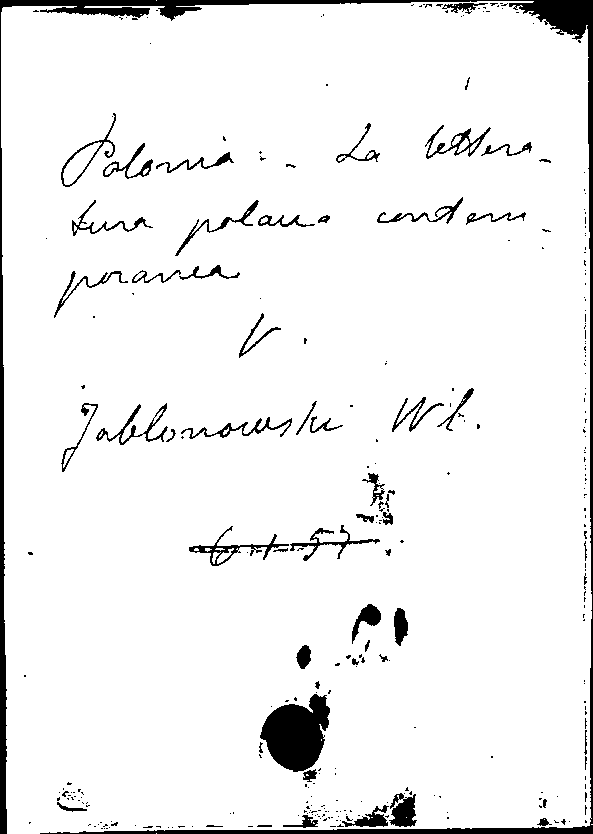 Polonia: - La lettera-
tura polacca contem-
poranea
V.
Jablonowski Wł.
6-1-57